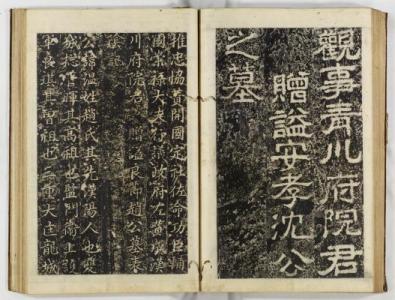 觀事青川府院君
贈諡安孝沈公
之墓
推忠協贊開國定社佐命功臣輔
國崇祿大夫議政府左贊成漢
川府院君贈諡良節趙公墓表
陰記
公諱溫姓趙氏其先漢陽人也雙
城摠管暉其高祖也監門衛上護
軍良琪其曾祖也三重大匡龍城